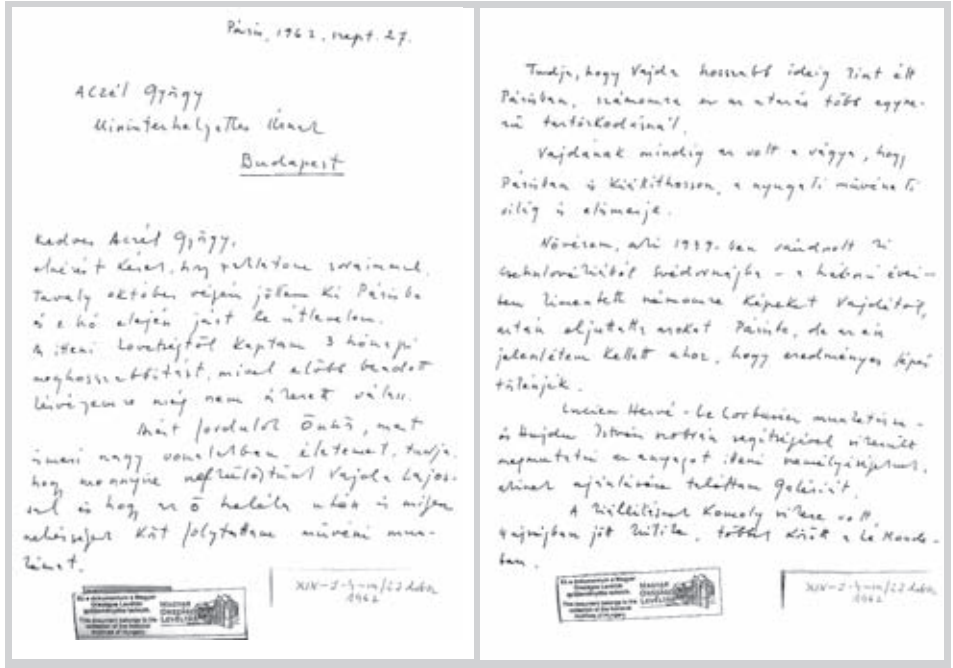 Páris, 1962. szept. 27.
Aczél György
Miniszterhelyettes Úrnak
Budapest
Kedves Aczél György,
elnézést kérek, hogy zaklatom soraimmal.
Tavaly október végén jöttem ki Párisba
és e hó elején járt le útlevelem.
A itteni követségtől kaptam 3 hónapi
meghosszabbítást, mivel előbb beadott
kérvényemre még nem érkezett válasz.
Azért fordulok Önhöz, mert
ismeri nagy vonalakban életemet, tudja,
hogy mennyire Vajda Lajos-
sal és hogy az ő halála után is milyen
nehézségek közt folytattam művészi mun-
kámat.
Ez a dokumentum a Magyar
Országos Levéltár
gyűjteményéhez tartozik.
This document belongs to the
collection of the National
Archives of Hungary.
MAGYAR
ORSZÁGOS
LEVÉLTÁR
1962
Tudja, hogy Vajda hosszabb ideig kint élt
Párisban, számomra ez az utazás több egysze-
rű tartózkodásnál.
Vajdának mindig az volt a vágya, hogy
Párisban is kiállíthasson, a nyugati művészeti
világ is elismerje.
Nővérem, aki 1939-ben vándorolt ki
Csehszlovákiából Svédországba - a háború évei-
ben kimentett számomra képeket Vajdától,
aztán eljuttatta azokat Párisba, de az én
jelenlétem kellett ahoz, hogy eredményes lépés
történjék.
Lucien Hervé - Le Corbusier munkatársa -
és Hajdu István szobrász segítségével sikerült
megmutatni az anyagot itteni személyiségeknek,
akinek ajánlására találtam galériát.
A kiállításnak komoly sikere volt,
újságban jött kritika, többek közt a Le Monde-
ban.
Ez a dokumentum a Magyar
Országos Levéltár
gyűjteményéhez tartozik.
This document belongs to the
collection of the National
Archives of Hungary.
MAGYAR
ORSZÁGOS
LEVÉLTÁR
1962